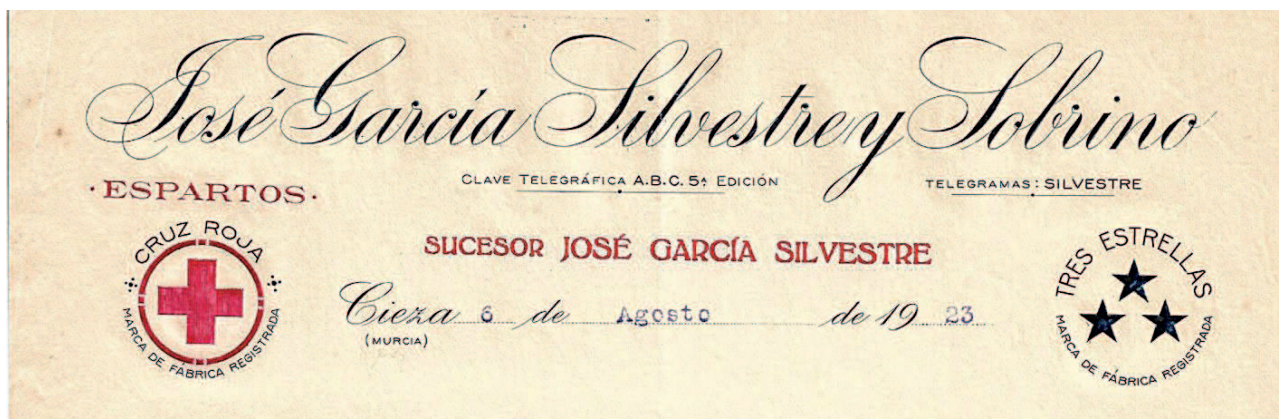 José García Silvestre y Sobrino
CLAVE TELEGRÁFICA A.B.C. 5ª EDICIÓN
TELEGRAMAS: SILVESTRE
·ESPARTOS·
CRUZ ROJA
MARCA DE FÁBRICA REGISTRADA
SUCESOR JOSÉ GARCÍA SILVESTRE
Cieza 6 de Agosto de 19 23
(MURCIA)
TRES ESTRELLAS
MARCA DE FÁBRICA REGISTRADA